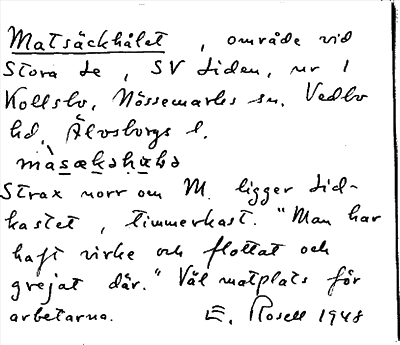 Matsäckhålet, område vid
Stora Le, SV sidan, nr 1
Kollsbo, Nössemarks sn. Vedbo
hd, Älvsborgs l.
màsækəhɷlə
Strax norr om M. ligger Lid-
kastet, timmerkast. "Man har
haft virke och flottat och
grejat där." Väl matplats för
arbetarna. E. Rosell 1948